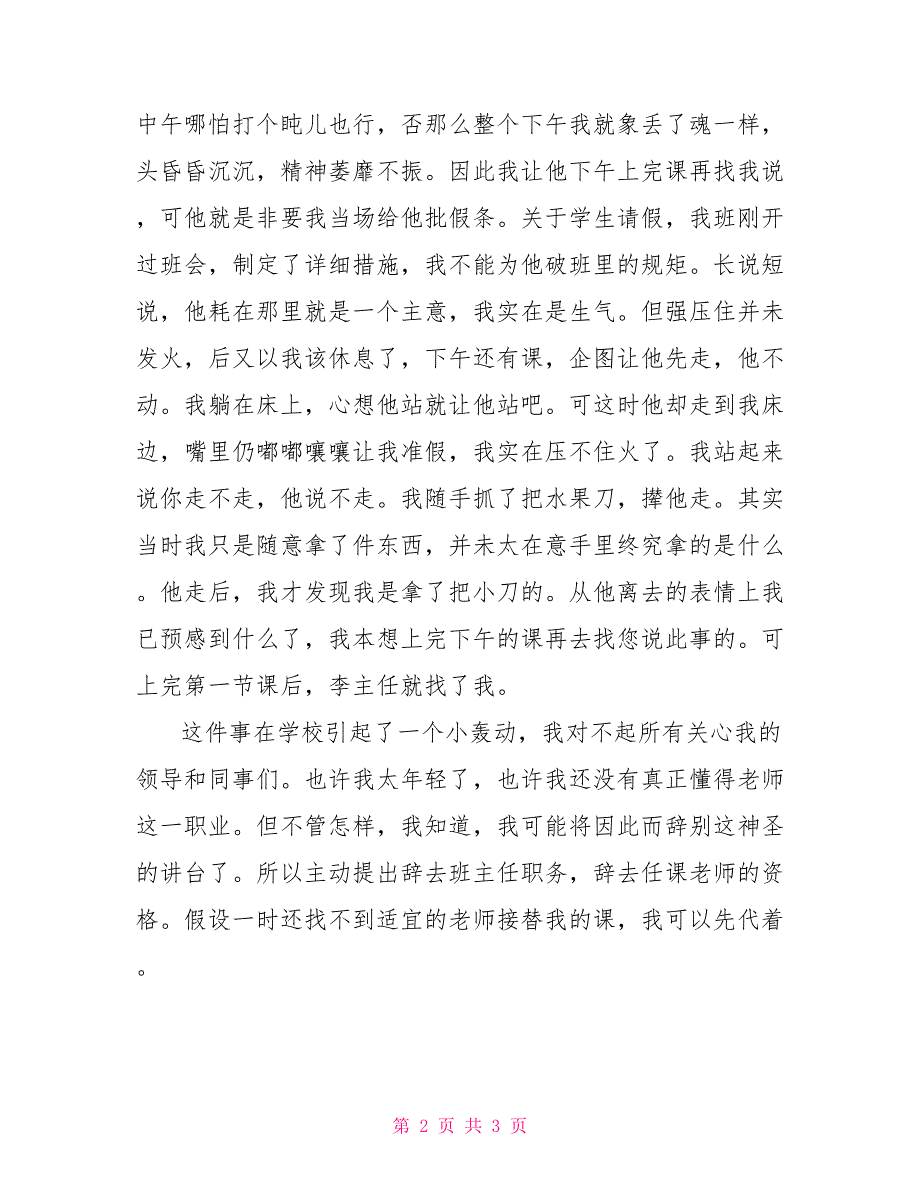 中午哪怕打个盹儿也行，否那么整个下午我就象丢了魂一样，
头昏昏沉沉，精神萎靡不振。因此我让他下午上完课再找我说
，可他就是非要我当场给他批假条。关于学生请假，我班刚开
过班会，制定了详细措施，我不能为他破班里的规矩。长说短
说，他耗在那里就是一个主意，我实在是生气。但强压住并未
发火，后又以我该休息了，下午还有课，企图让他先走，他不
动。我躺在床上，心想他站就让他站吧。可这时他却走到我床
边，嘴里仍嘟嘟囔囔让我准假，我实在压不住火了。我站起来
说你走不走，他说不走。我随手抓了把水果刀，撵他走。其实
当时我只是随意拿了件东西，并未太在意手里终究拿的是什么
。他走后，我才发现我是拿了把小刀的。从他离去的表情上我
已预感到什么了，我本想上完下午的课再去找您说此事的。可
上完第一节课后，李主任就找了我。
这件事在学校引起了一个小轰动，我对不起所有关心我的
领导和同事们。也许我太年轻了，也许我还没有真正懂得老师
这一职业。但不管怎样，我知道，我可能将因此而辞别这神圣
的讲台了。所以主动提出辞去班主任职务，辞去任课老师的资
格。假设一时还找不到适宜的老师接替我的课，我可以先代着
。
第 2 页 共 3 页